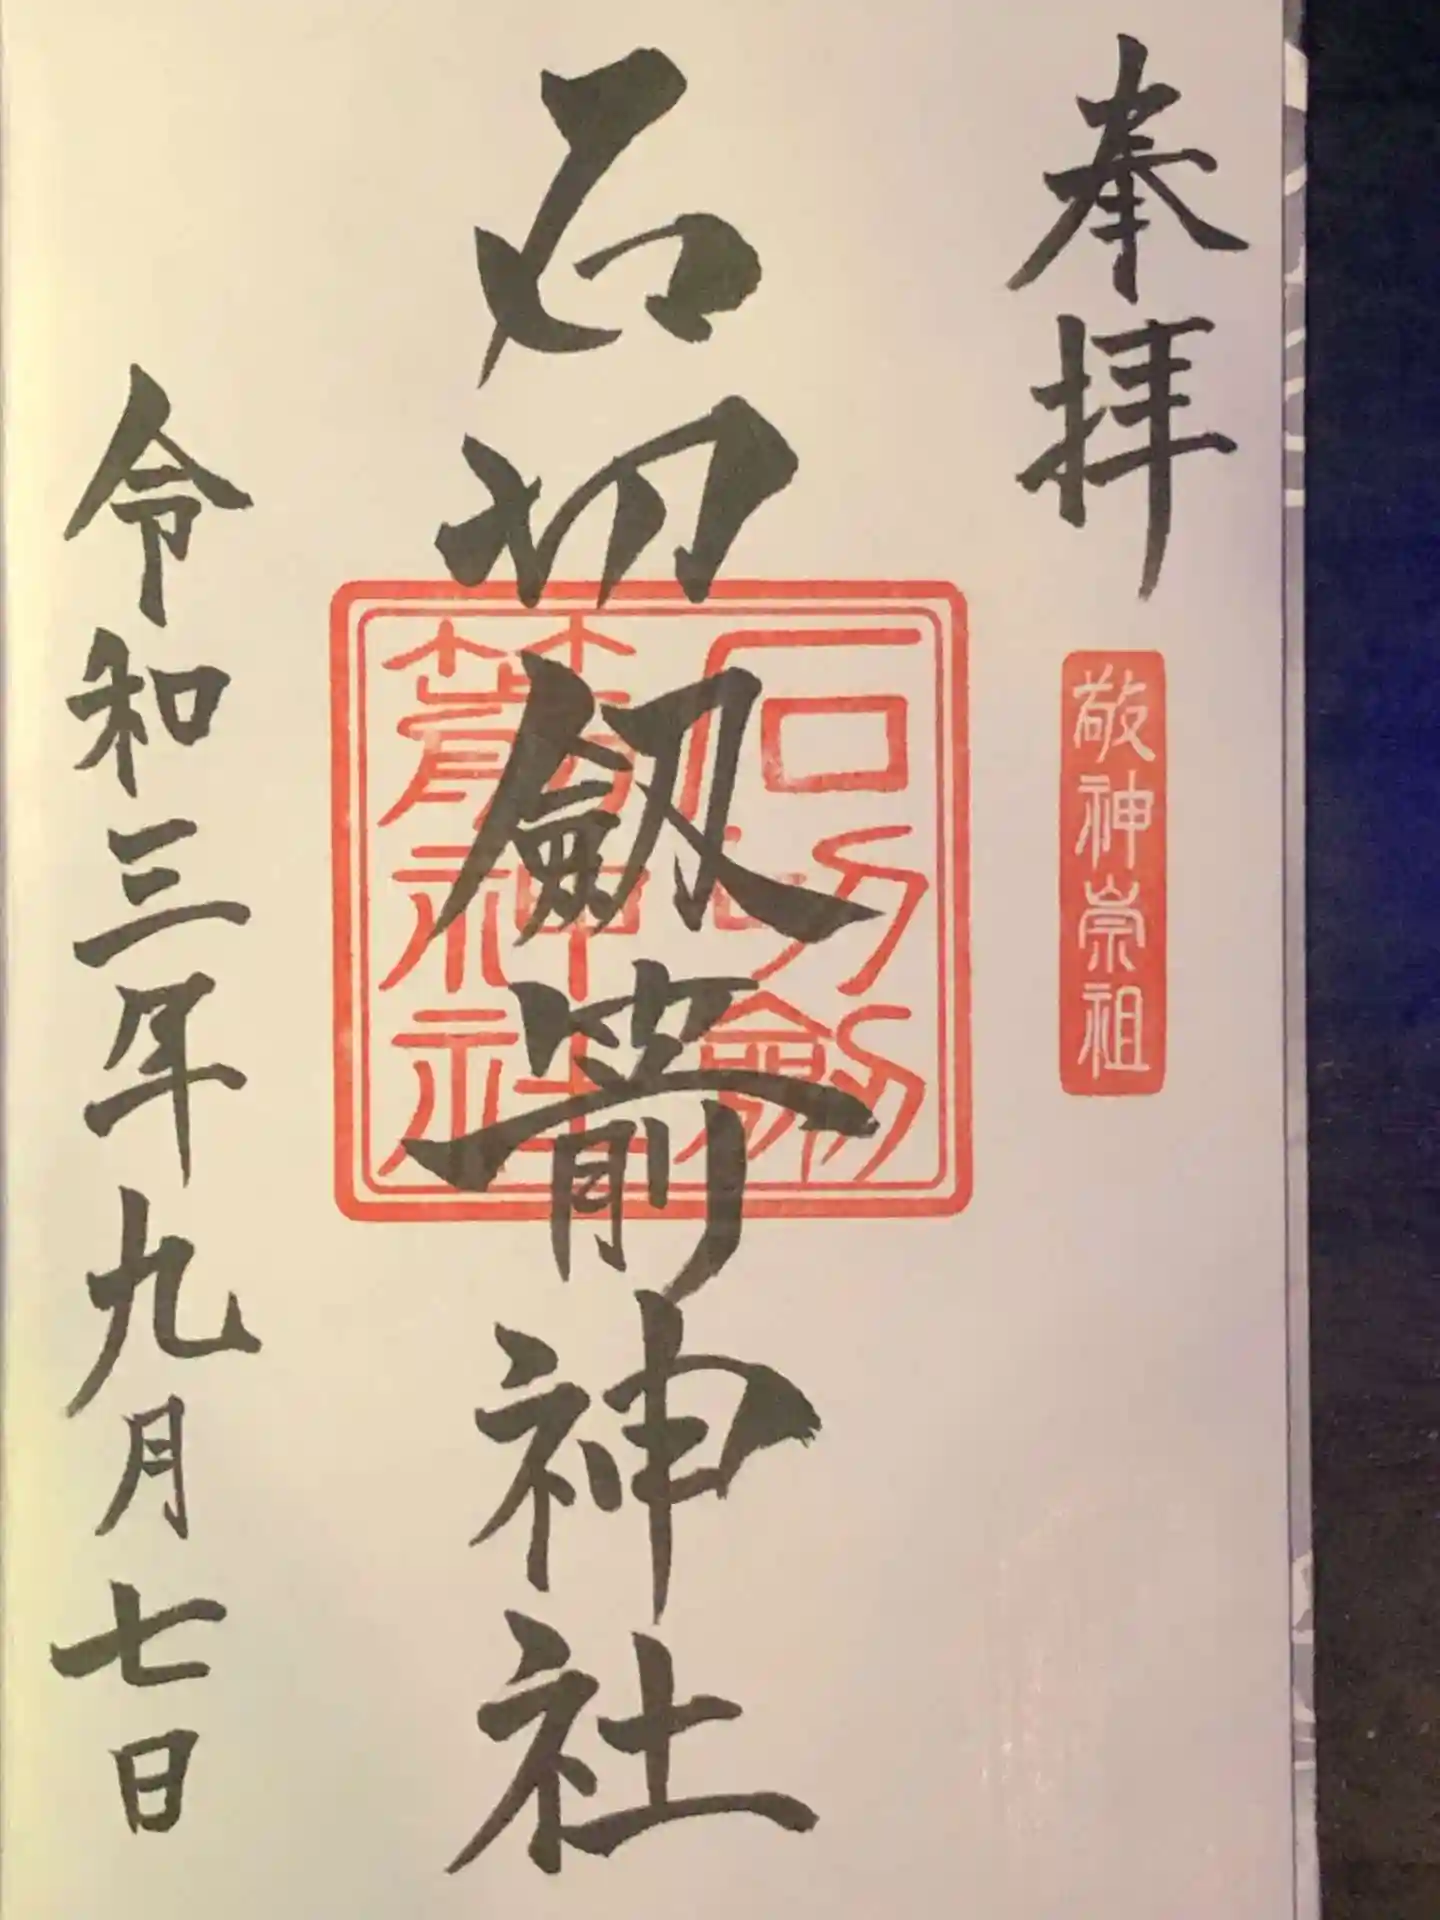 奉拝
敬神崇祖
石切劔箭神社
石切劔
箭神社
令和三年九月七日